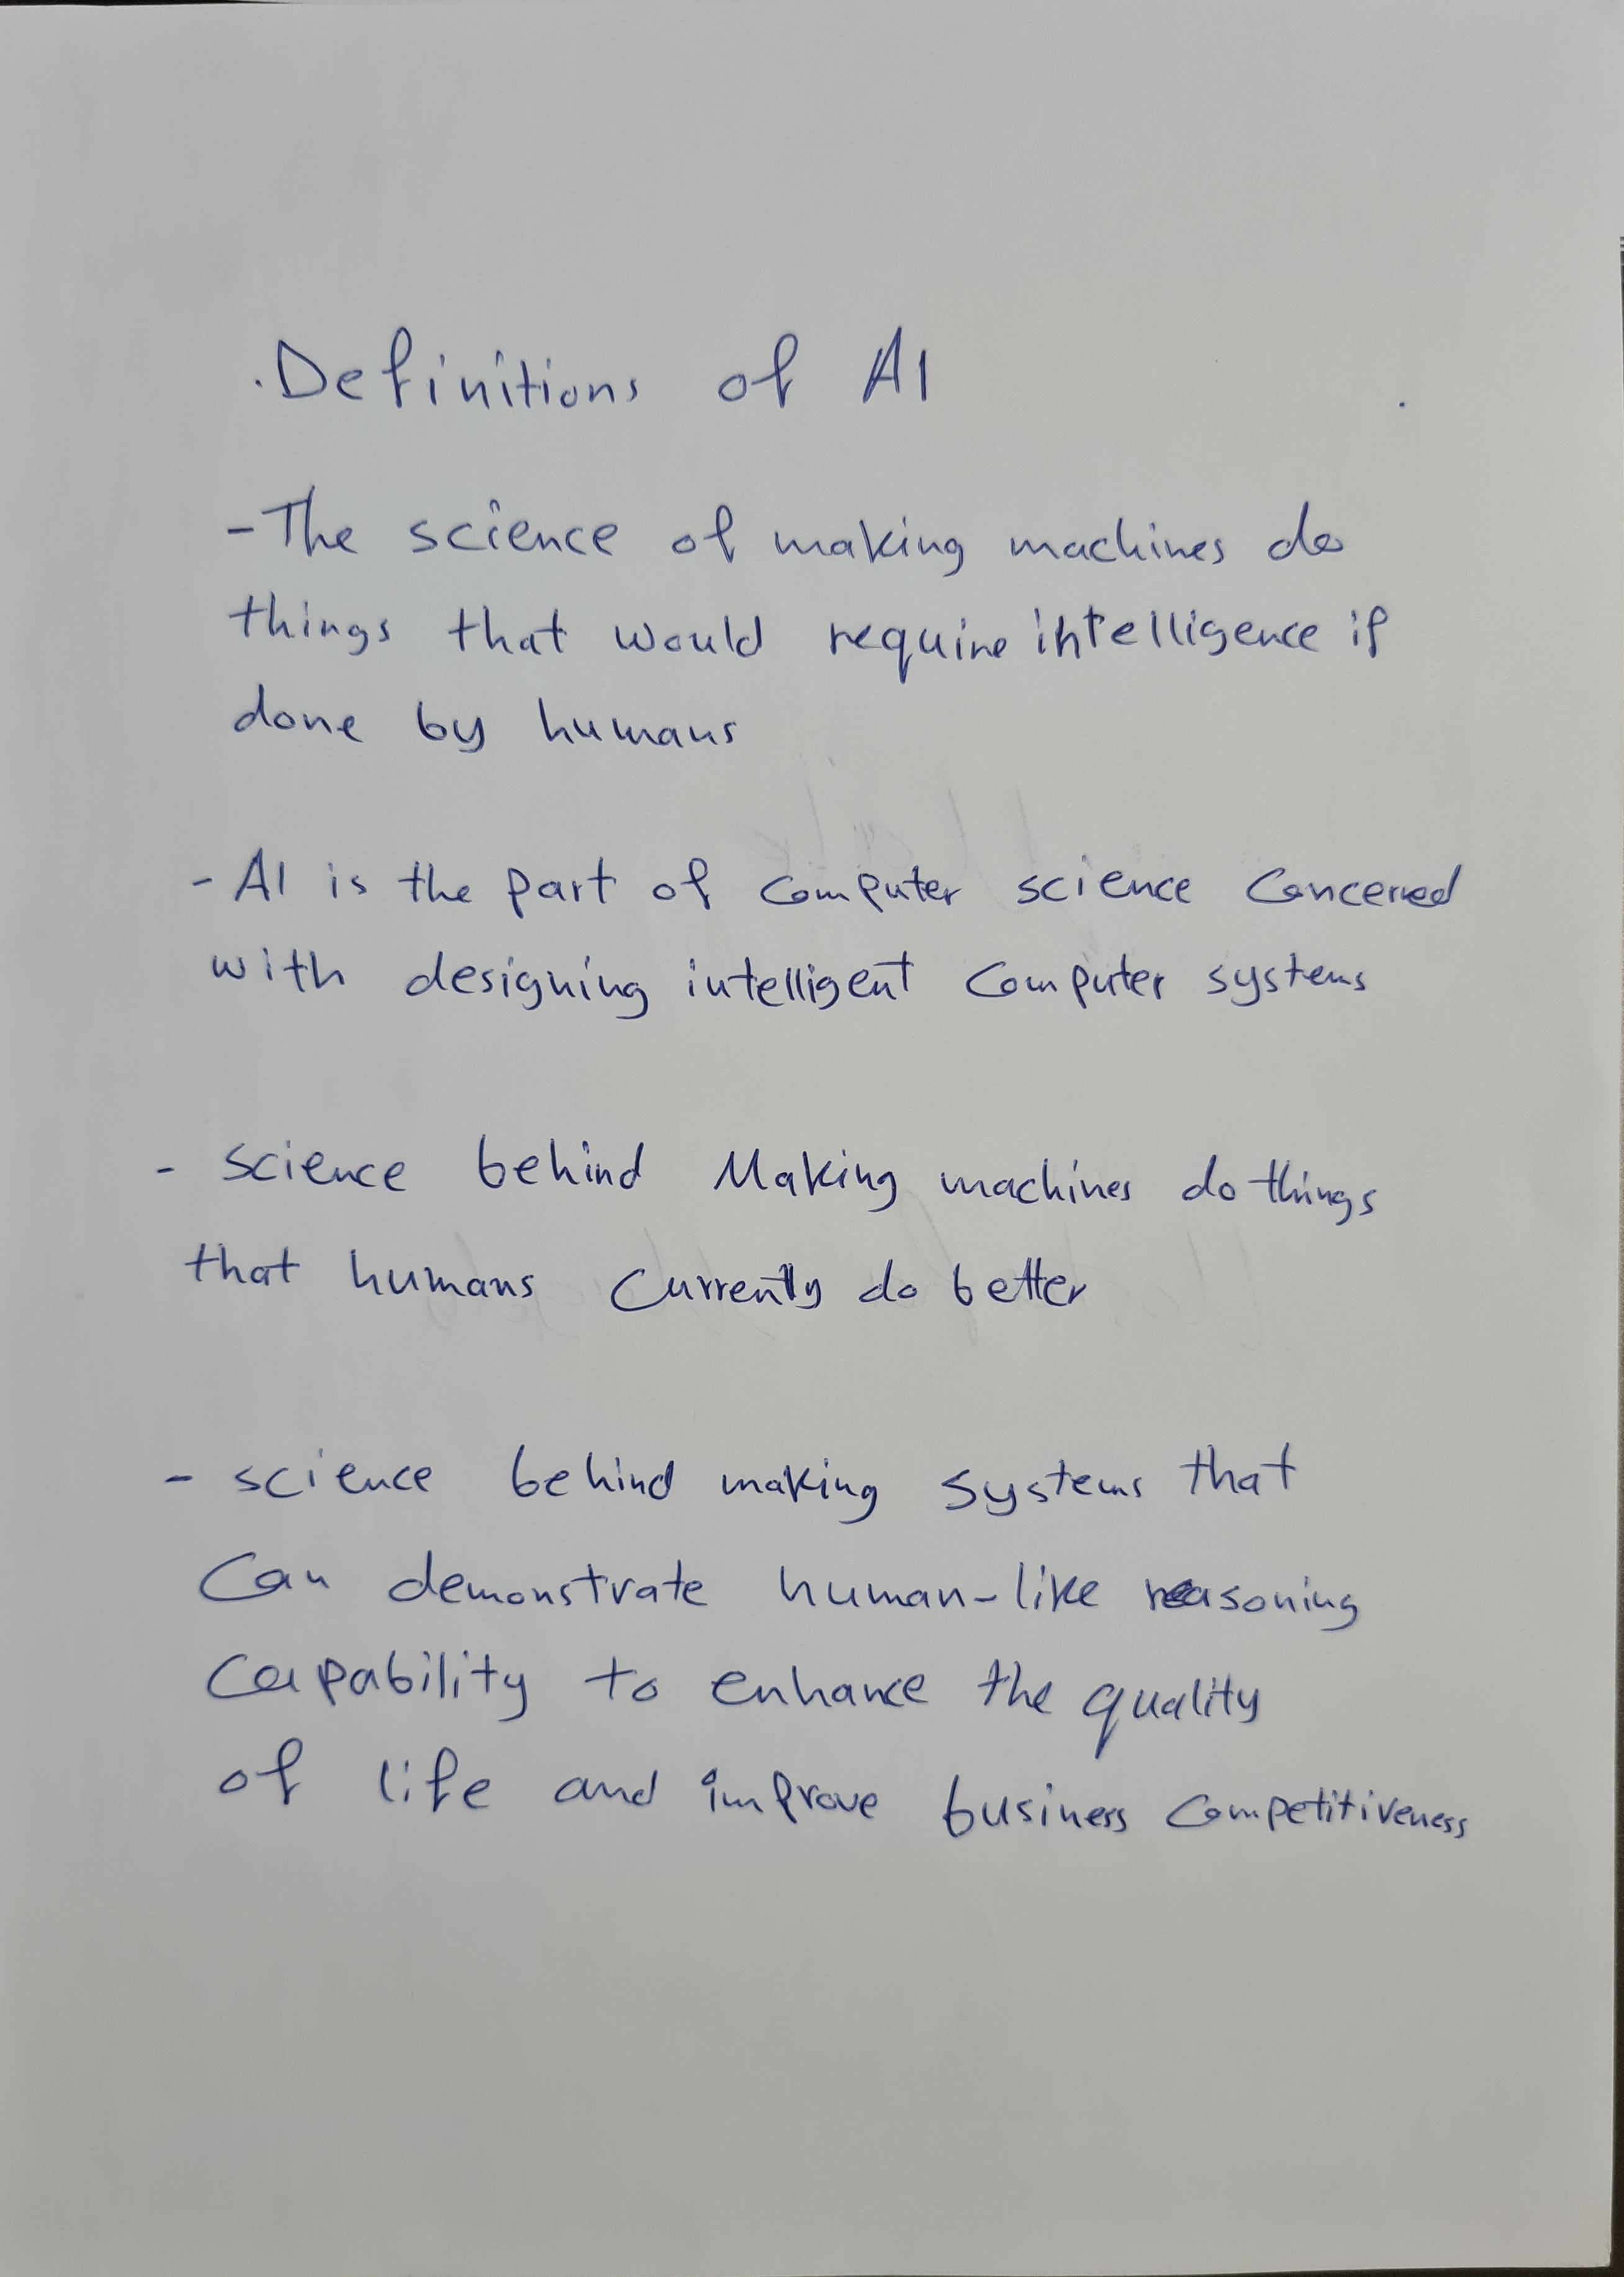 .Definitions of AI
-The science of making machines do
things that would require intelligence if
done by humans
- AI is the part of computer science concerned
with designing intelligent computer systems
- science behind Making machines do things
that humans currently do better
- science behind making systems that
Can demonstrate human-like reasoning
capability to enhance the quality
of life and improve business competitiveness